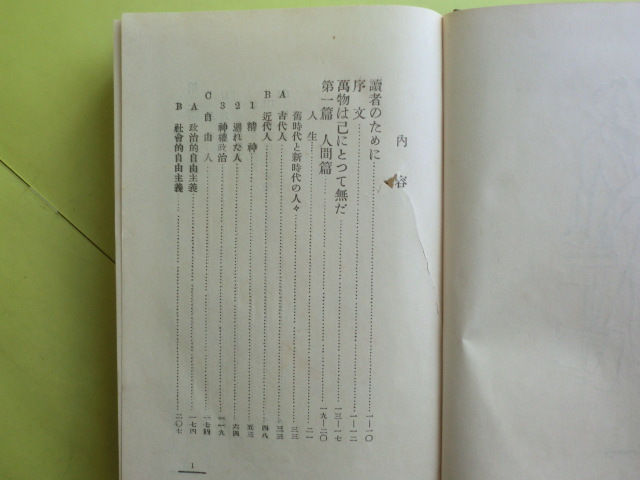 內容
讀者のために……一—一〇
序文……一一—一二
萬物は己にとつて無だ……一三—一七
第一篇 人間篇……一九—二〇
人生……二一
舊時代と新時代の人々……三三
A 古代人……三三
B 近代人……四八
1 精神……五三
2 憑れた人……六四
3 神權政治……一一九
C 自由人……一七四
A 政治的自由主義……一七四
B 社會的自由主義……二〇七
1